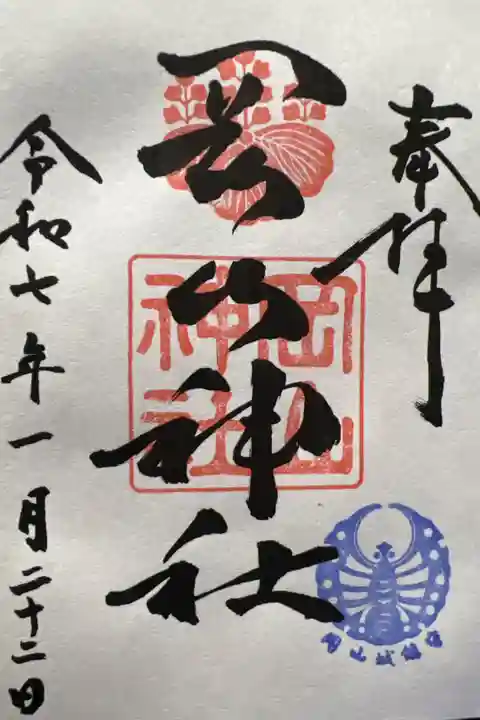 奉拝
岡山神社
岡山神社
令和七年一月二十二日